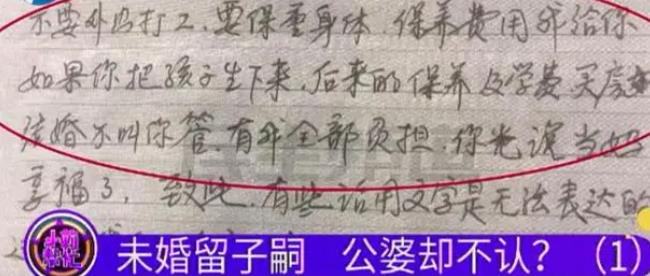 不要外出打工，要保重身体，保养费用我给你
如果你把孩子生下来，后来的保养及学费买房
结婚不叫你管，有我全部负担，你光说当奶
享福了，致此，有些话用文字是无法表达的
未婚留子嗣 公婆却不认？（1）